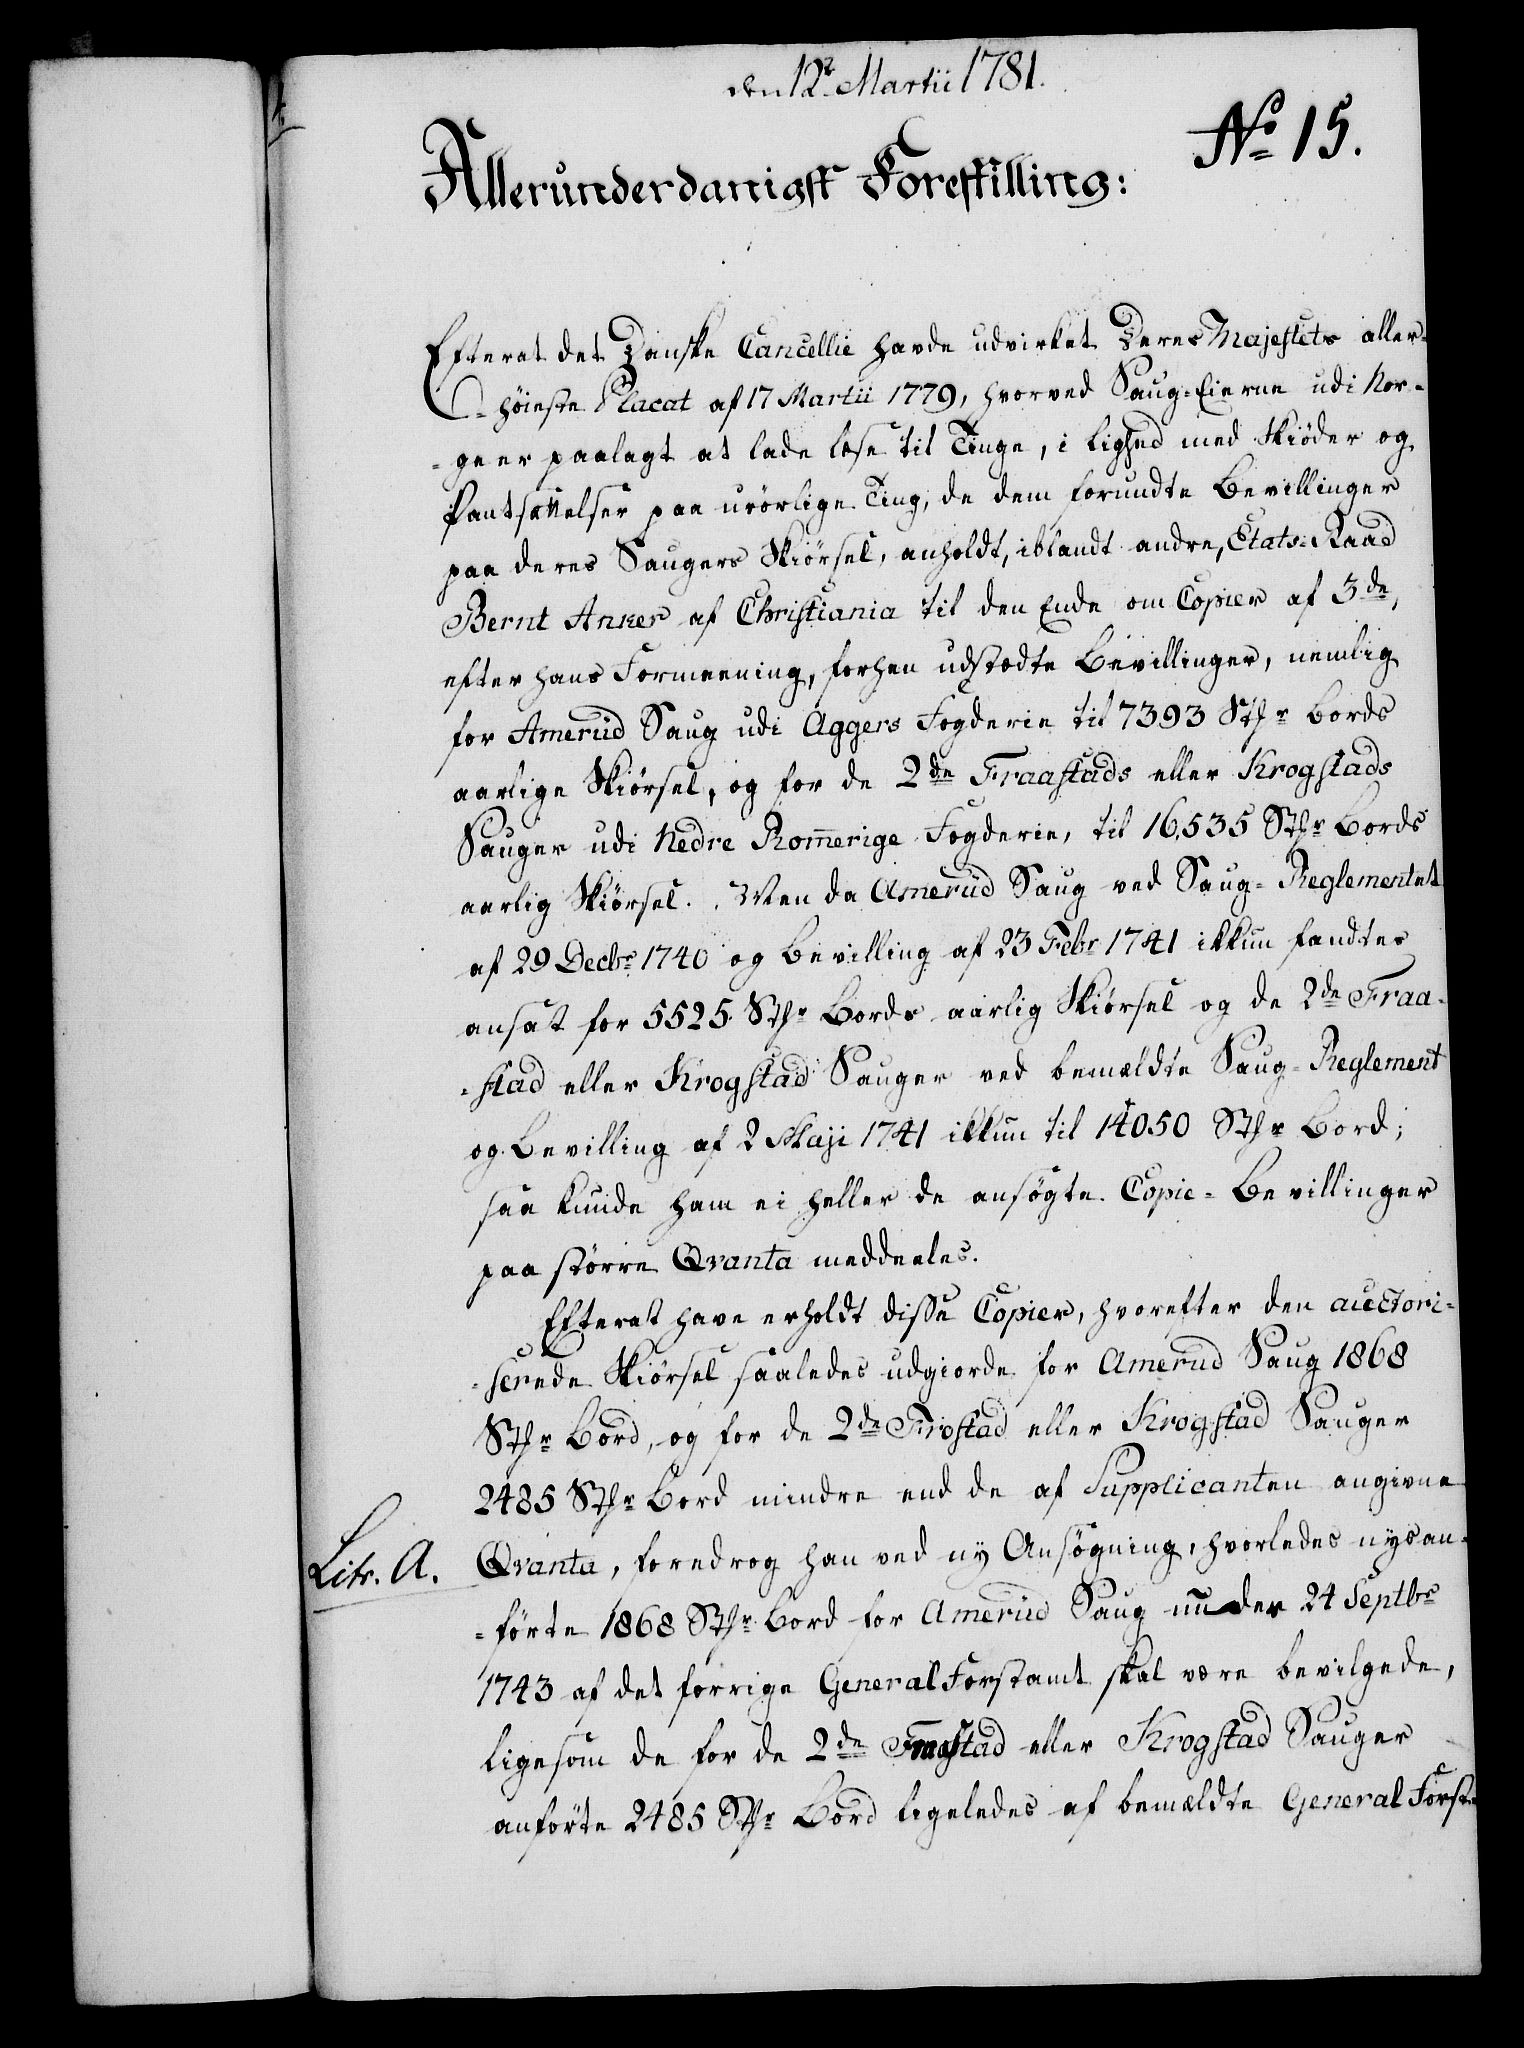 den 12te Martii 1781.
No 15.
Allerunderdanigst Forestilling:
Efterat det Danske Cancellie havde udvirket Deres Majestets aller-
-høieste Placat af 17 Martii 1779, hvorved Saug-Eierne udi Nor-
-ge er paalagt at lade læse til Tinge, i Lighed med Skiøder og
Pantsættelser paa urörlige Ting, de dem forundte Bevillinger
paa deres Saugers Skiörsel, anholdt, iblandt andre, Etats-Raad
Bernt Anker af Christiania til den Ende om Copier af 3de,
efter hans Formeening, forhen udstædte Bevillinger, nemlig
for Amerud Saug udi Aggers Fogderie til 7393 Stkr Bords
aarlige Skiörsel, og for de 2de Fraastads eller Krogstads
Sauger udi Nedre Rom̄erige Fogderie, til 16,535 Stkr Bords
aarlig Skiörsel. Men da Amerud Saug ved Saug-Reglementet
af 29 Decbr 1740 og Bevilling af 23 Febr 1741 ikkun fandtes
ansat for 5525 Stkr Bords aarlig Skiörsel og de 2de Fraa-
-stad eller Krogstad Sauger ved bemældte Saug-Reglement
og Bevilling af 2 Maji 1741 ikkun til 14050 Stkr Bord;
saa kunde ham ei heller de ansögte Copie-Bevillinger
paa större Qvanta meddeeles.
Efterat have erholdt disse Copier, hvorefter den auctori-
-serede Skiörsel saaledes udgiorde for Amerud Saug 1868
Stkr Bord, og for de 2de Frostad eller Krogstad Sauger
2485 Stkr Bord mindre end de af Supplicanten angivne
Litr. A.
Qvanta, foredrog han ved ny Ansögning, hvorledes nysan-
-förte 1868 Stkr Bord for Amerud Saug under 24 Septbr
1743 af det forrige General Forstamt skal være bevilgede,
ligesom de for de 2de Fraastad eller Krogstad Sauger
anförte 2485 Stkr Bord ligeledes af bemældte General Forst-